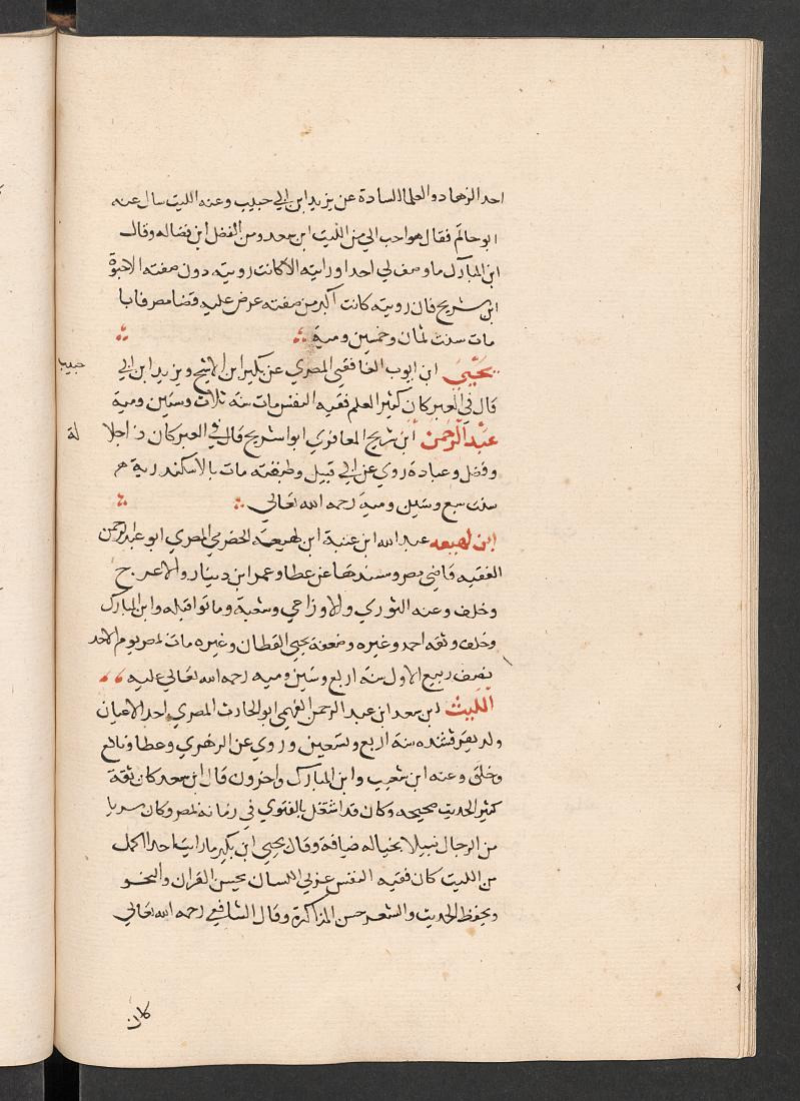 احد الزهاد والعلما السادة عن يزيد ابن ابي حبيب وعنه الليث سال عنه
ابو حاتم فقال هو احب الي من الليث ابن سعد ومن الفضل ابن فضاله وقال
ابن المبارك ما وصف لي احد اورايته الا كانت رويته دون صفته الا حيوة
ابن شريح فان رويته كانت اكبر من صفته عرض عليه قضا مصر فابا
مات سنت ثمان وخمسين وميه
يحيى ابن ايوب الغافقي المصري عن بكير ابن الاشج ويزيد ابن ابي حبيب
قال في العبر كان كثير العلم فقيه النفس مات سنه ثلاث وستين وميه
عبد الرحمن ابن شريح المعافري ابوا شريح قال في العبر كان ذا جلالة
وفضل وعبادة روي عن ابي قبيل وطبقته مات بالاسكندرية
سنت سبع وستين وميه رحمه الله تعالي
ابن لهيعه عبد الله ابن عتبة ابن لهيعه الحضرمي المصري ابو عبد الرحمن
الفقيه قاضي مصر ومسندها عن عطا وعمر ابن دينار والاعرج
وخلف وعنه الثوري والاوزاعي وشعبة وماتوا قبله وابن المبارك
وخلف وثقه احمد وغيره وضعفه يحيى القطان وغيره مات بمصر يوم الاحد
نصف ربيع الاول سنه اربع وستين وميه رحمه الله تعالي عليه
الليث ابن سعد ابن عبد الرحمن الفهمي ابو الحارث المصري احد الاعيان
ولد بقرقشنده سنه اربع وتسعين وروي عن الزهري وعطا ونافع
وخلق وعنه ابن شعيب وابن المبارك واخرون قال ابن سعد كان ثقة
كثير الحديث صحيحه وكان قد اشتغل بالفتوي في زمانه بمصر وكان سريا
من الرجال نبيلا سخيا له ضيافة وقال يحيى ابن بكير ما رايت احد اكمل
من الليث كان فقيه النفس عربي اللسان يحسن القران والنحو
ويحفظ الحديث والشعر حسن المذاكرة وقال الشافعي رحمه الله تعالي
كان